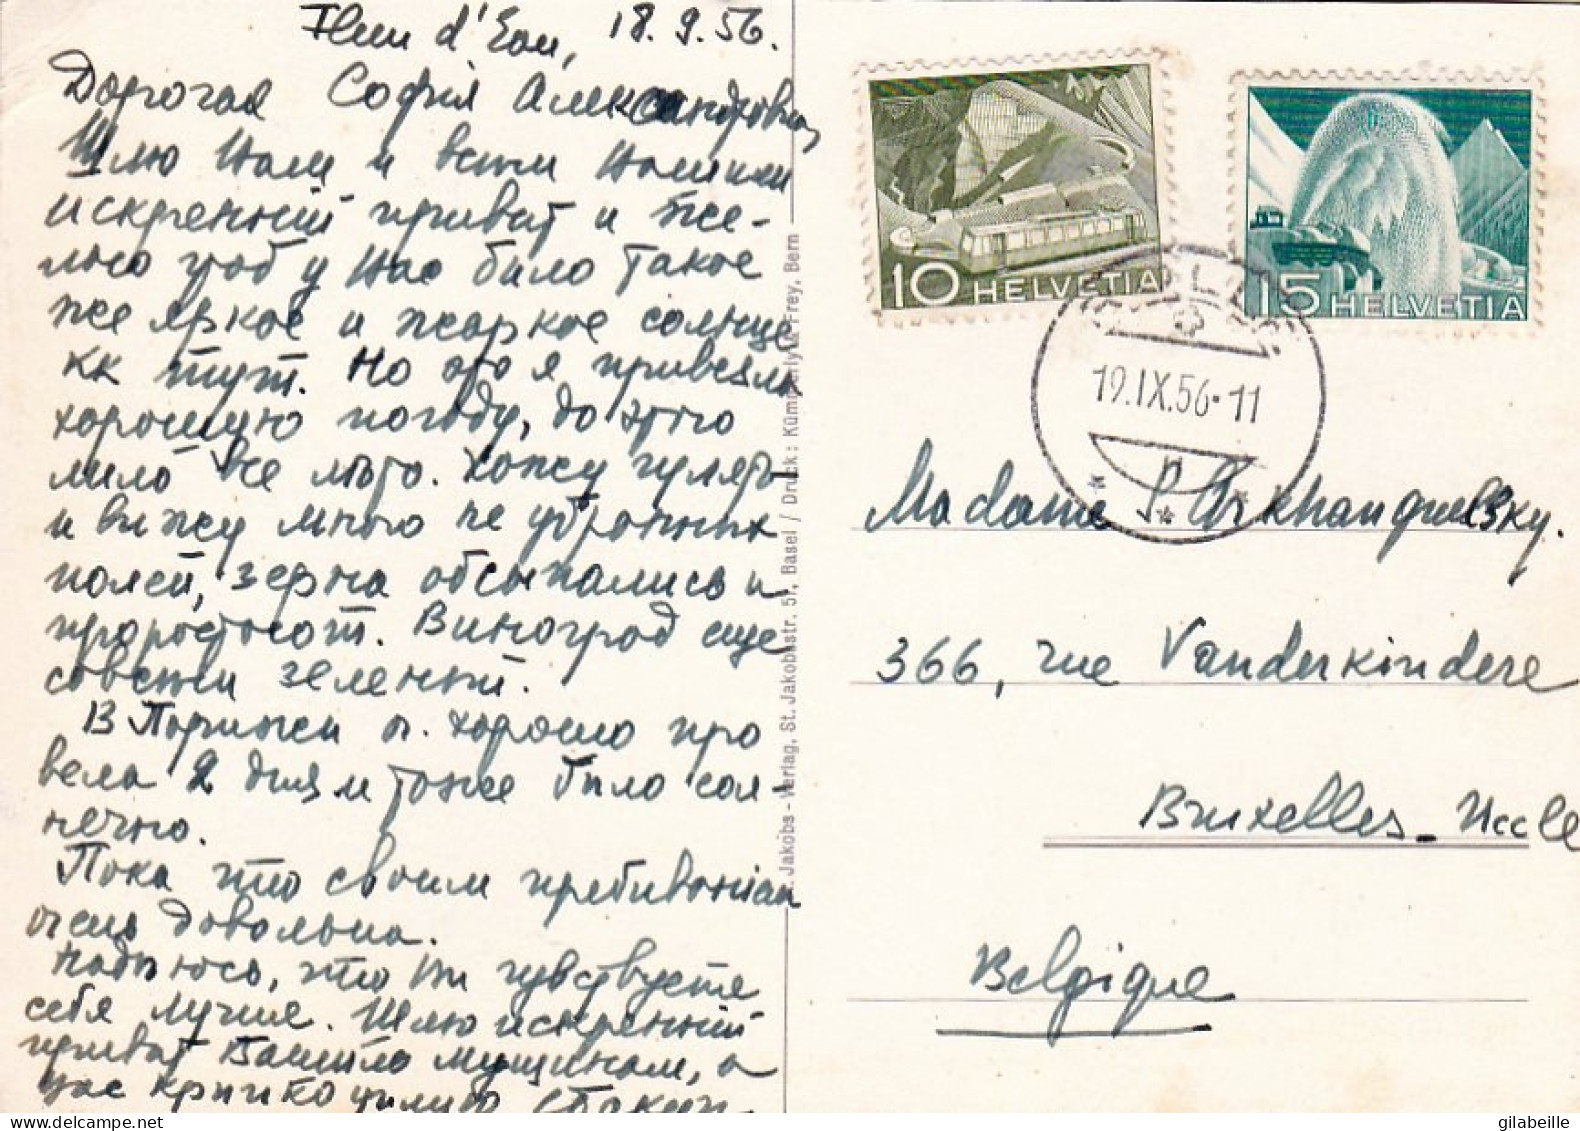 18.9.56.
Дорогая Софія Александровна,
Шлю Вам и всем Вашим
искренній привѣт и же-
лаю чтоб у Вас было такое
же яркое и жаркое солнце
как тут. Но это я привезла
хорошую погоду, до этого
лило все лѣто. Хожу гулять
и вижу много не убранных
полей, зерна обсыпались и
проростают. Виноград еще
совсѣм зеленый.
В Парижѣ я хорошо про
вела 2 дня и тоже было сол-
нечно.
Пока что своим пребываніем
очень довольна.
Надѣюсь, что Вы чувствуете
себя лучше. Шлю искренній
привѣт Вашим мущинам, а
Вас крѣпко цѣлую
10 HELVETIA
15 HELVETIA
19.IX.56-11
Madame S. Arkhanguelsky.
366, rue Vanderkindere
Bruxelles-Uccle
Belgique
Jakobs-Verlag, St. Jakobsstr. 51, Basel / Druck: Kümmerly & Frey, Bern
gilabeille